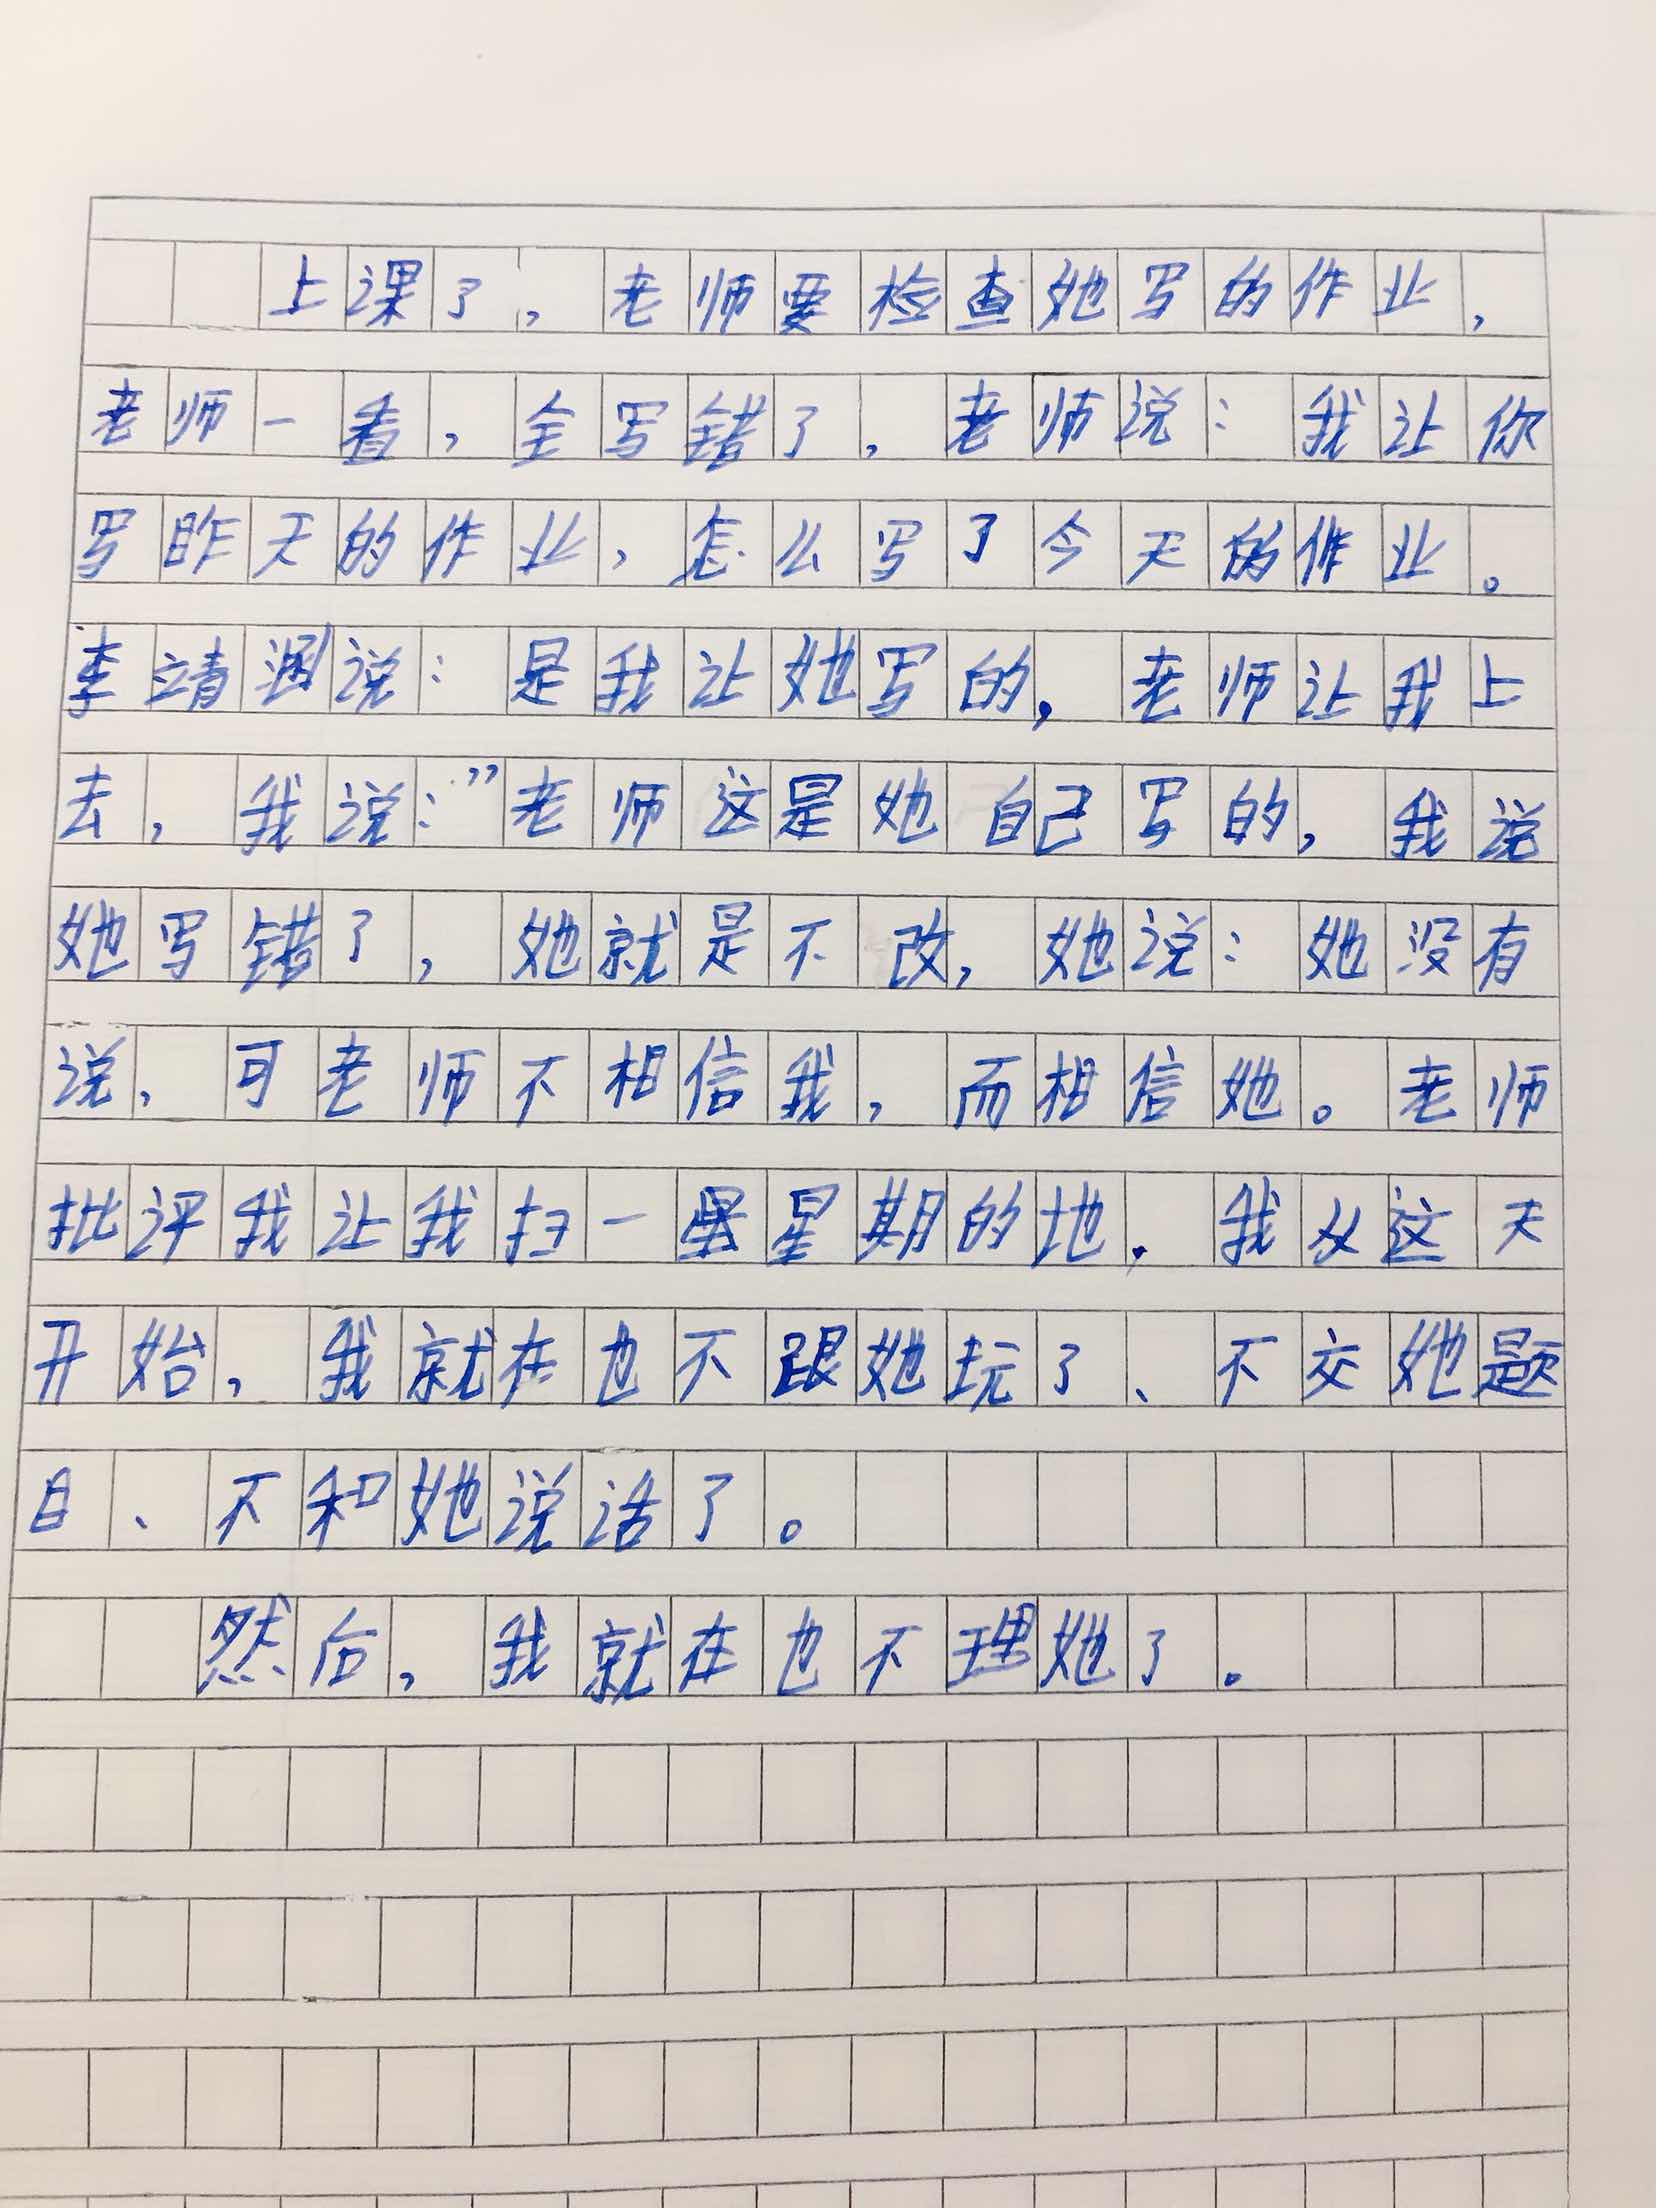 上课了，老师要检查她写的作业，
老师一看，全写错了，老师说：我让你
写昨天的作业，怎么写了今天的作业。
李靖涵说：是我让她写的，老师让我上
去，我说：”老师这是她自己写的，我说
她写错了，她就是不改，她说：她没有
说，可老师不相信我，而相信她。老师
批评我让我扫一星期的地，我从这天
开始，我就在也不跟她玩了、不交她题
目、不和她说话了。
然后，我就在也不理她了。